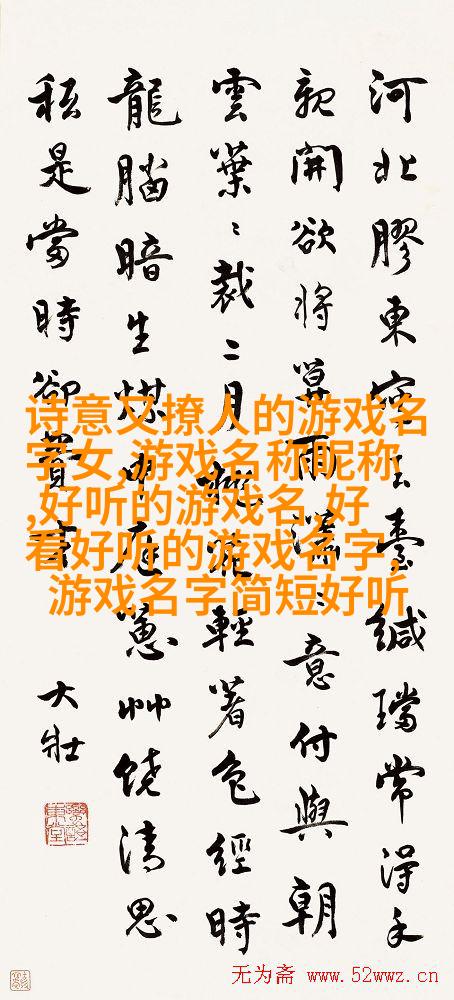 河北膠東臺緘璫常得手
親開欲將雨瀟〻意付與朝
雲葉〻裁二月桃花輕著色經時
龍腦暗生煤中庭蕙艸饒清思
秖是當時卻費
大壯
诗意又撩人的游戏名
字女,游戏名称昵称
,好听的游戏名,好
看好听的游戏名字,
游戏名字简短好听
无为斋 www.52wwz.cn